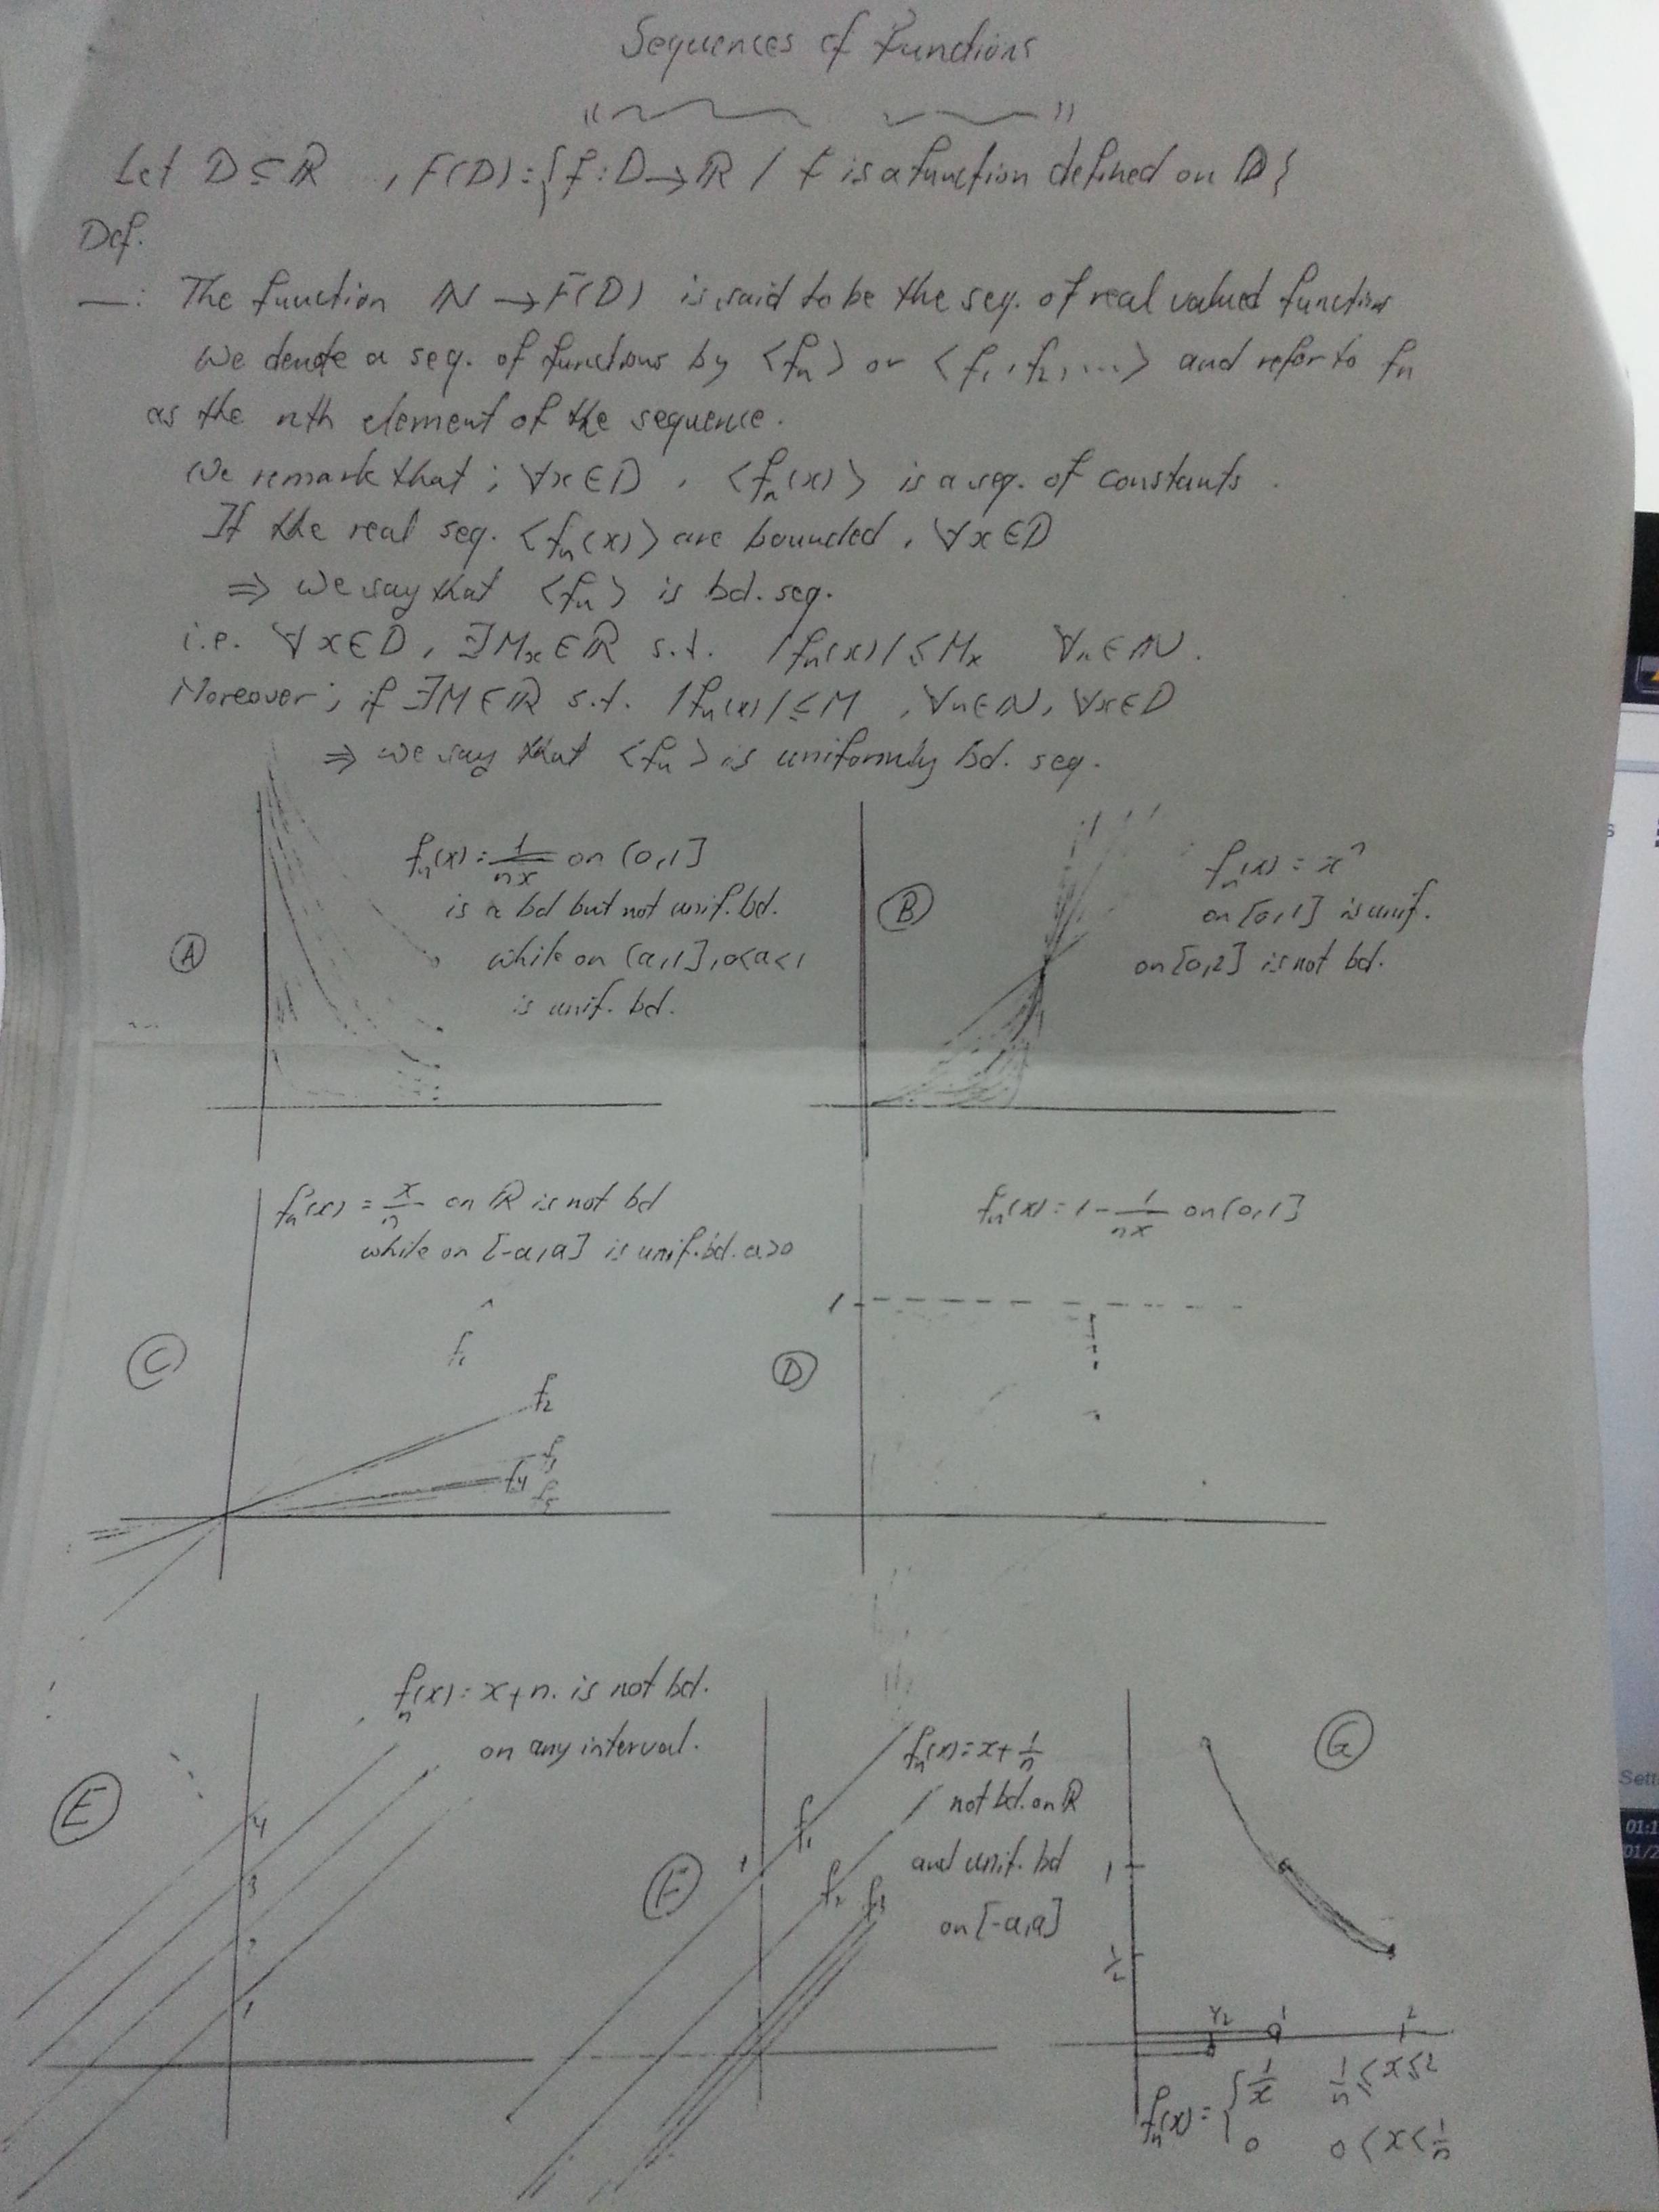 Sequences of Functions
Let D ⊆ ℝ , F(D) = { f : D → ℝ / f is a function defined on D }
Def.
: The function ℕ → F(D) is said to be the seq. of real valued function
We denote a seq. of functions by <fₙ> or <f₁, f₂, ...> and refer to fₙ
as the nth element of the sequence.
We remark that ; ∀x∈D , <fₙ(x)> is a seq. of constants .
If the real seq. <fₙ(x)> are bounded , ∀x∈D
⇒ we say that <fₙ> is bd. seq.
i.e. ∀x∈D , ∃Mₓ∈ℝ s.t. |fₙ(x)| ≤ Mₓ ∀n∈ℕ.
Moreover ; if ∃M∈ℝ s.t. |fₙ(x)| ≤ M , ∀n∈ℕ, ∀x∈D
⇒ we say that <fₙ> is uniformly bd. seq.
A
fₙ(x) = 1/nx on (0,1]
is a bd but not unif. bd.
while on (a,1], 0<a<1
is unif. bd.
B
fₙ(x) = xⁿ
on [0,1] is unif.
on [0,2] is not bd.
C
fₙ(x) = x/n on ℝ is not bd
while on [-a,a] is unif. bd. a>0
f₁
f₂
f₃
f₄
f₅
D
fₙ(x) = 1 - 1/nx on (0,1]
1
E
fₙ(x) = x+n. is not bd.
on any interval.
4
3
2
1
F
fₙ(x) = x + 1/n
not bd. on ℝ
and unif. bd
on [-a,a]
1
f₁
f₂
f₃
G
1
1/2
1/2 1 2
fₙ(x) = { 1/x 1/n ≤ x ≤ 2
0 0 < x < 1/n